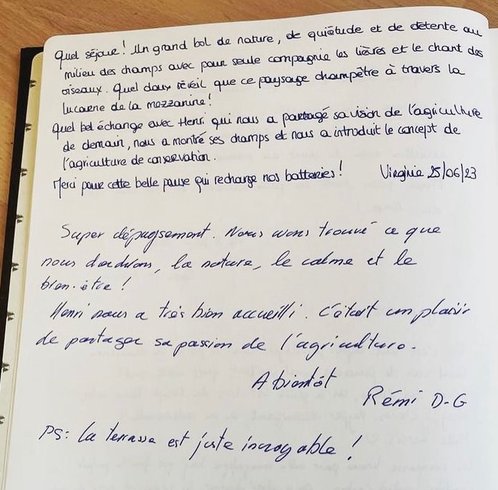 Quel séjour ! Un grand bol de nature, de quiétude et de détente au
milieu des champs avec pour seule compagnie les lièvres et le chant des
oiseaux. Quel doux réveil que ce paysage champêtre à travers la
lucarne de la mezzanine !
Quel bel échange avec Henri qui nous a partagé sa vision de l'agriculture
de demain, nous a montré ses champs et nous a introduit le concept de
l'agriculture de conservation.
Merci pour cette belle pause qui recharge nos batteries ! Virginie 25/06/23
Super dépaysement. Nous avons trouvé ce que
nous voulions, la nature, le calme et le
bien-être !
Henri nous a très bien accueilli. C'était un plaisir
de partager sa passion de l'agriculture.
A bientôt
Rémi D-G
PS: La terrasse est juste incroyable !